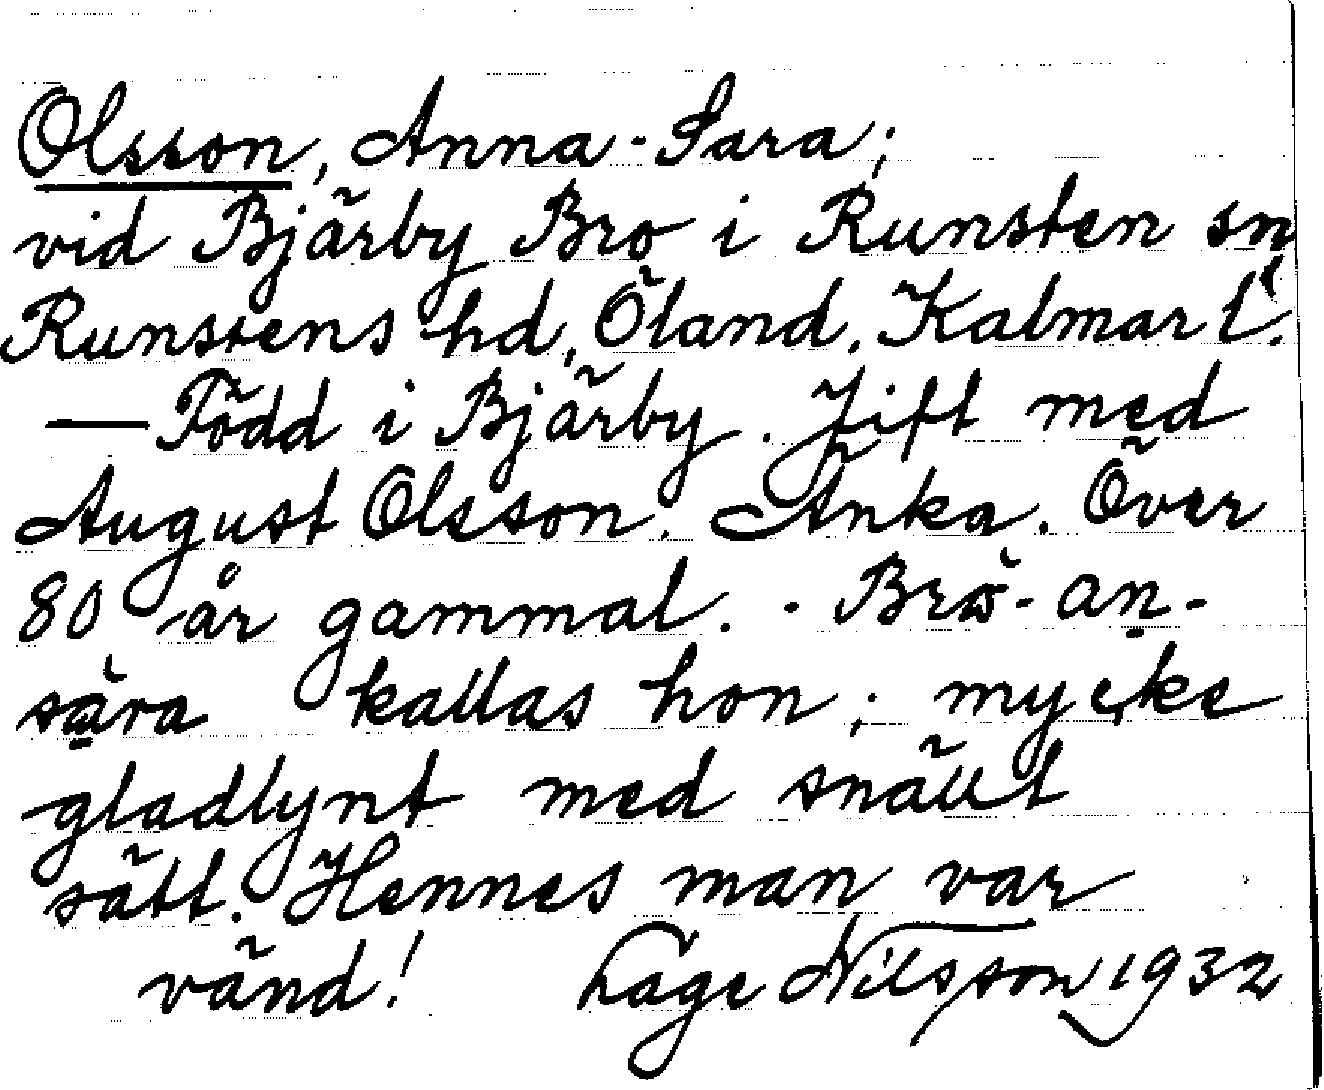 Olsson, Anna-Sara;
vid Bjärby Bro i Runsten sn
Runstens hd, Öland, Kalmar l.
— Född i Bjärby. Jift med
August Olsson. Änka. Över
80 år gammal. - Brö-an-
sära kallas hon; mycke
gladlynt med snällt
sätt. Hennes man var
vänd! Lage Nilsson 1932